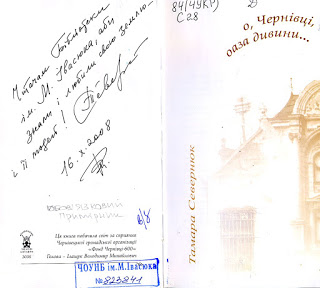 Читачам бібліотеки
ім. М. Івасюка, аби
знали і любили свою землю
і її людей!
16.X.2008
Обов'язковий
примірник
в/8
Ця книга побачила світ за сприяння
Чернівецької громадської організації
«Фонд Чернівці-600»
Голова – Іллєра Володимир Михайлович
2008
ЧОУНБ ім.М.Івасюка
№ 823841
84(4УКР)
С 28
о, Чернівці,
оаза дивини...
Тамара Севернюк